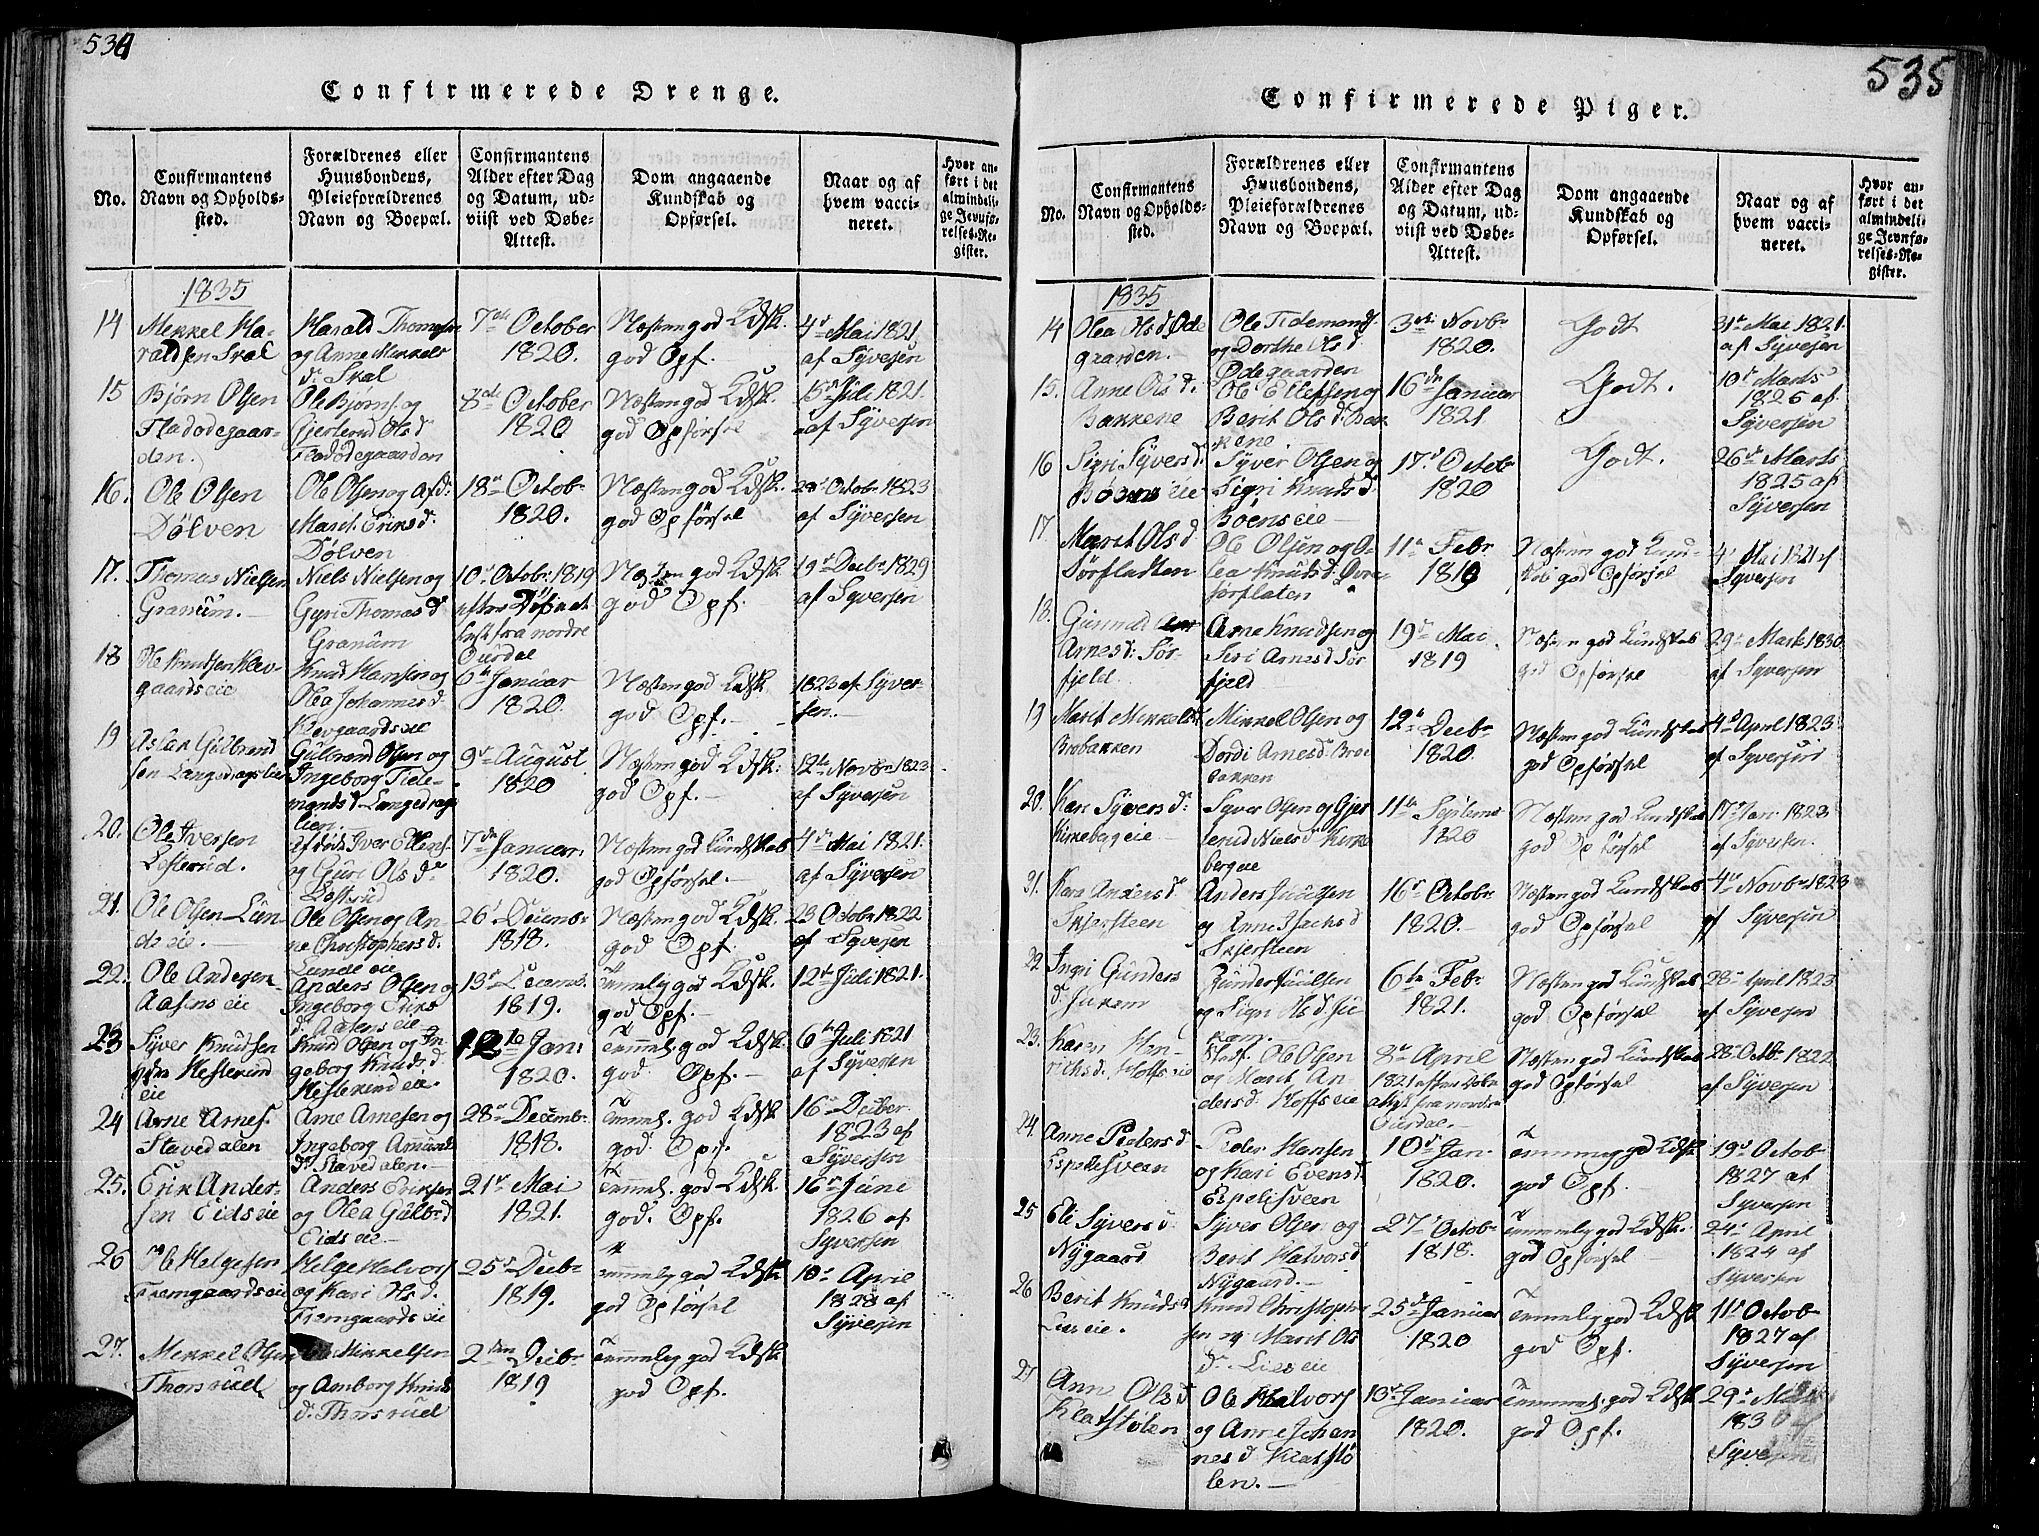 534
Confirmerede Drenge.
No.
Confirmantens
Navn og Opholds-
sted.
Forældrenes eller
Huusbondens,
Pleieforældrenes
Navn og Boepæl.
Confirmantens
Alder efter Dag
og Datum, ud-
viist ved Døbe-
Attest.
Dom angaaende
Kundskab og
Opførsel.
Naar og af
hvem vacci-
neret.
Hvor an-
ført i det
almindeli-
ge Jevnfø-
relses-Re-
gister.
1835
14
Mekkel Ha-
raldsen Skal
Harald Thomesen
og Anne Mikkels
d. Skal
7de October
1820.
Næsten god Kdsk.
god Opf.
4d Mai 1821
af Syversen
15
Bjørn Olsen
Fladødegaar-
den.
Ole Bjørns. og
Gjertrud Ols d
Fladødegaarden
8de October
1820
Næsten god Kdsk.
god Opførsel
15d Juli 1821.
af Syversen
16.
Ole Olsen
Dölven
Ole Olsen og Afd:
Marit Eriksd.
Dölven
18de Octob.
1820.
Næsten god Kdsk.
god Opførsel
Octobr 1823
af Syversen
17.
Thomas Nielsen
Granum.
Niels Nielsen og
Gyri Thomasd
Granum
10d Octobr. 1819
efter Døbeat
test fra nordre
Ourdal
Næsten god Kdsk
god Opf.
19d Decbr 1829
af Syversen
18
Ole Knudsen Klev-
gaards eie
Knud Hansen og
Olea Johannesd
Klevgaards eie
6te Januar
1820.
Næsten god Kdsk
god Opf.
1823 af Syver-
sen.
19
Aslak Gulbrand
sen Langedragslien
Gulbrand Olsen og
Ingeborg Tide-
mandsd Langedrags
lien
9de August
1820
Næsten god Kdsk.
god Opf.
12te Novbr 1823
af Syversen
20.
Ole Iversen
Lofterud.
Iver Ellefs.
og Guri Ols d.
Loftrud
7de Januar.
1820.
Næsten god Kundskab
god Opførsel.
4d Mai 1821.
af Syversen
21.
Ole Olsen Lun-
ds eie.
Ole Olsen og An-
ne Christophersd.
Lunde eie
26d Decemb.
1818.
Næsten god Kdsk.
god Opf.
23 Octobr 1822
af Syversen
22.
Ole Andersen
Aasens eie
Anders Olsen og
Ingeborg Eriks
d. Aasens eie
13d Decemb.
1819.
Temmelig god Kdsk.
god Opf.
12te Juli 1821.
23
Syver Knudsen
Hesterud
eie
Knud Olsen og In-
geborg Knuds d.
Hesterud eie.
12te Jan:
1820.
Temmel. god Kdsk.
god Opf.
6te Juli 1821
af Syversen
24
Arne Arnes.
Stavedalen
Arne Arnesen og
Ingeborg Amunds
d. Stavedalen.
28de Decemb.
1818.
Temmel. god Kdsk.
god. Opf.
16d Decber.
1823 af
Syversen
25.
Erik Ander-
sen Eids eie
Anders Eriksen
og Olea Gulbrd
Eids eie.
21de Mai
1821.
Temmel. god Kdsk.
god. Opf.
16d Juni
1826 af
Syversen
26
Ole Helgesen
Fremgaards eie
Helge Halvors.
og Kari Ols d.
Fremgaards eie
25d Decbr
1819.
Temmelig god Kdsk
god Opførsel
10d April
1828 af
Syversen
27.
Mekkel Olsen
Thorsrud
Mikkelsen
og Amborg Knuds
d. Thorsrud
2den Decbr
1819
Temmelig god Kdsk
god Opf.
535
Confirmerede Piger.
No.
Confirmantens
Navn og Opholds-
sted.
Forældrenes eller
Huusbondens,
Pleieforældrenes
Navn og Boepæl.
Confirmantens
Alder efter Dag
og Datum, ud-
viist ved Døbe-
Attest.
Dom angaaende
Kundskab og
Opførsel.
Naar og af
hvem vacci-
neret.
Hvor an-
ført i det
almindeli-
ge Jevnfø-
relses-Re-
gister.
1835
14
Olea Ols d. Øde
gaarden.
Ole Tidemands.
og Dorthe Ols d.
Ødegaarden
3de Novbr
1820.
Godt
31te Mai 1821.
af Syvesen
15.
Anne Ols d.
Bakkene
Ole Ellefsen og
Berit Ols d. Bak
kene.
16de Januar
1821
Godt.
10de Marts
1826 af
Syversen
16
Sigri Syvers d.
Böens eie
Syver Olsen og
Sigri Knuds d.
Böens eie
17d Octob
1820
Godt.
26de Marts
1825 af
Syversen
17.
Marit Ols d
Sørflatten
Ole Olsen og O-
lea Knudsd. Øvre
sørflaten
11te Febr
1819
Næsten god Kund-
skab god Opførsel
4d Mai 1821 af
Syversen
18.
Gunnild
Arnesd. Sør
fjeld.
Arne Knudsen og
Siri Arnesd Sør
fjeld
19de Mai
1819
Næsten god Kundskab
god Opførsel
29de Marts 1830
af Syversen
19
Marit Mekkelsd.
Brobakken
Mikkel Olsen og
Dordi Arnesd Bro
bakken
12te Decbr
1820.
Næsten god Kundskab
god Opførsel
4d April 1823
af Syversen
20.
Kari Syvers d.
Kirkeberg eie
Syver Olsen og Gjer
trud Nielsd Kirke
berg eie
11te Septemb
1820
Næsten god Kundskab
god Opførsel
17de Jan. 1823
af Syversen.
21.
Kari Anders d
Skjersteen
Anders Juulsen
og Anne Isachs d
Skjersteen
16d Octobr
1820.
Næsten god Kundskab
god Opførsel
4de Novbr 1823
af Syversen
22
Ingri Gunders
d. Jukam
Gunder Juulsen
og Sigri Ols d Ju
kam.
6te Febr
1821.
Næsten god Kundskab
god Opførsel
28de April 1823.
af Syversen
23.
Karen Hen-
richsd. Hoffs eie
Ole Olsen
og Marit An
dersd. Hoffs eie
8de April
1821 efter Døbe
attest fra nordre
Ourdal.
Næsten god Kundskab
god Opførsel
28de Octbr 1822
af Syversen
24.
Anne Peders d
Espelisveen
Peder Hansen
og Kari Evens d.
Espelisveen
10d Jan.
1820.
Temmelig god Kdsk
god Opf.
19d Octob
1827 af
Syversen
25
Eli Syvers d.
Nygaard
Syver Olsen og
Berit Halvors d.
Nygaard.
27d Octob
1818.
Temmelig god Kdsk.
god Opførsel
24d April
1824 af
Syversen
26
Berit Knuds d
Lies eie.
Knud Christophers
sen og Marit Ols
d. Lies eie
25d Januar
1820
Temmelig god Kdsk
god Opf.
11te Octob
1827 af
Syversen
27
Anne Ols d
Kleatstølen
Ole Halvors.
og Anne Johan
nes d Kleatstö
len.
13d Januar
1820.
Temmel. god Kdsk
god Opf.
29d
183 af
Syversen